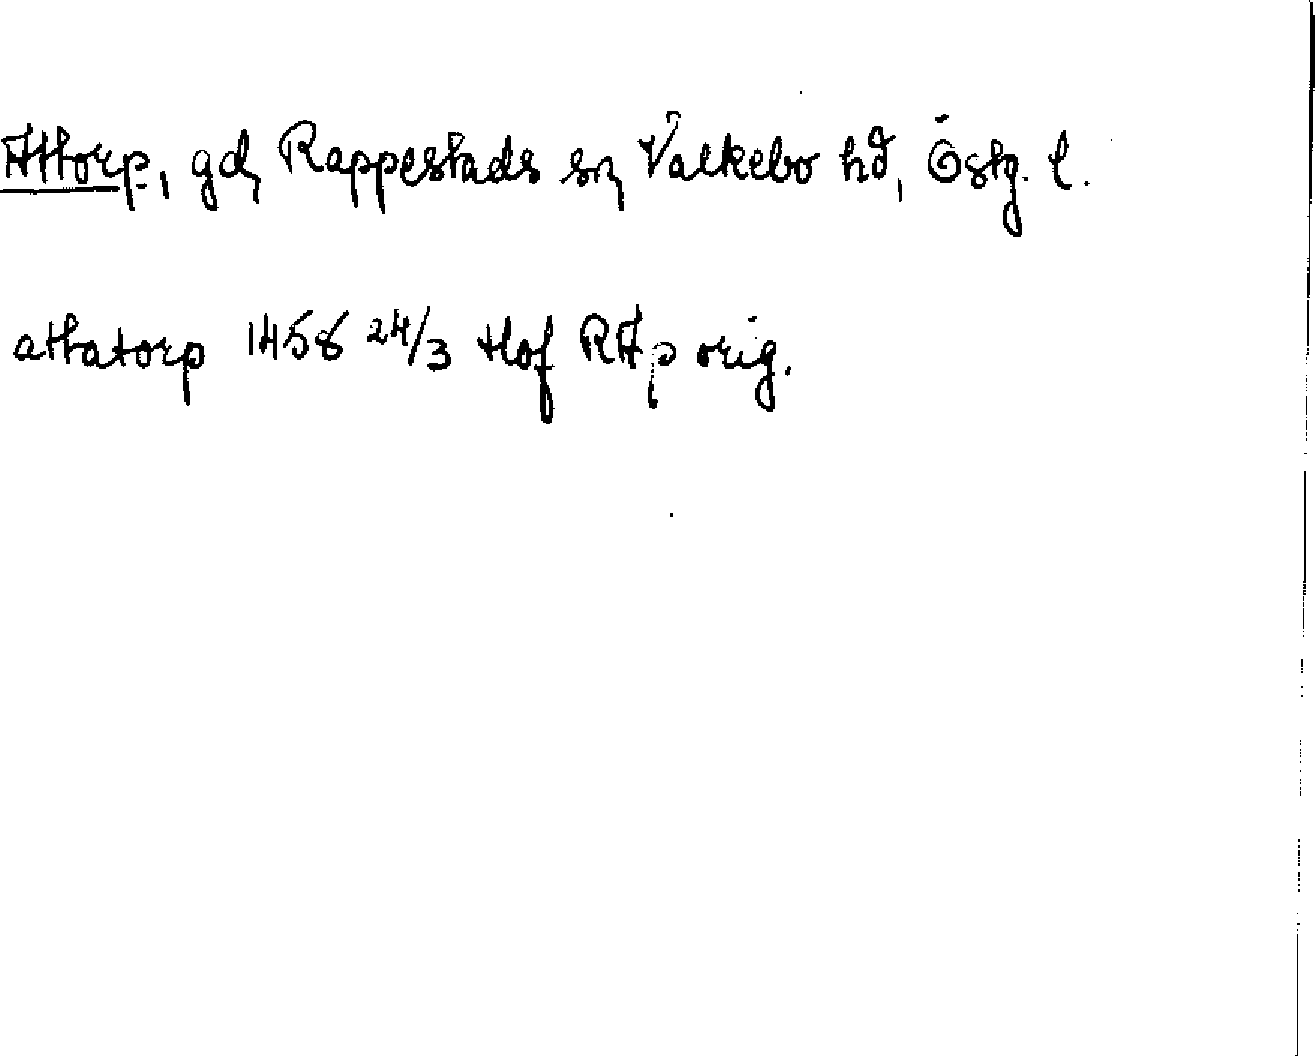 Attorp, gd, Rappestads sn, Valkebo hd, Östg. l.
attatorp 1458 24/3 Hof RAp orig.